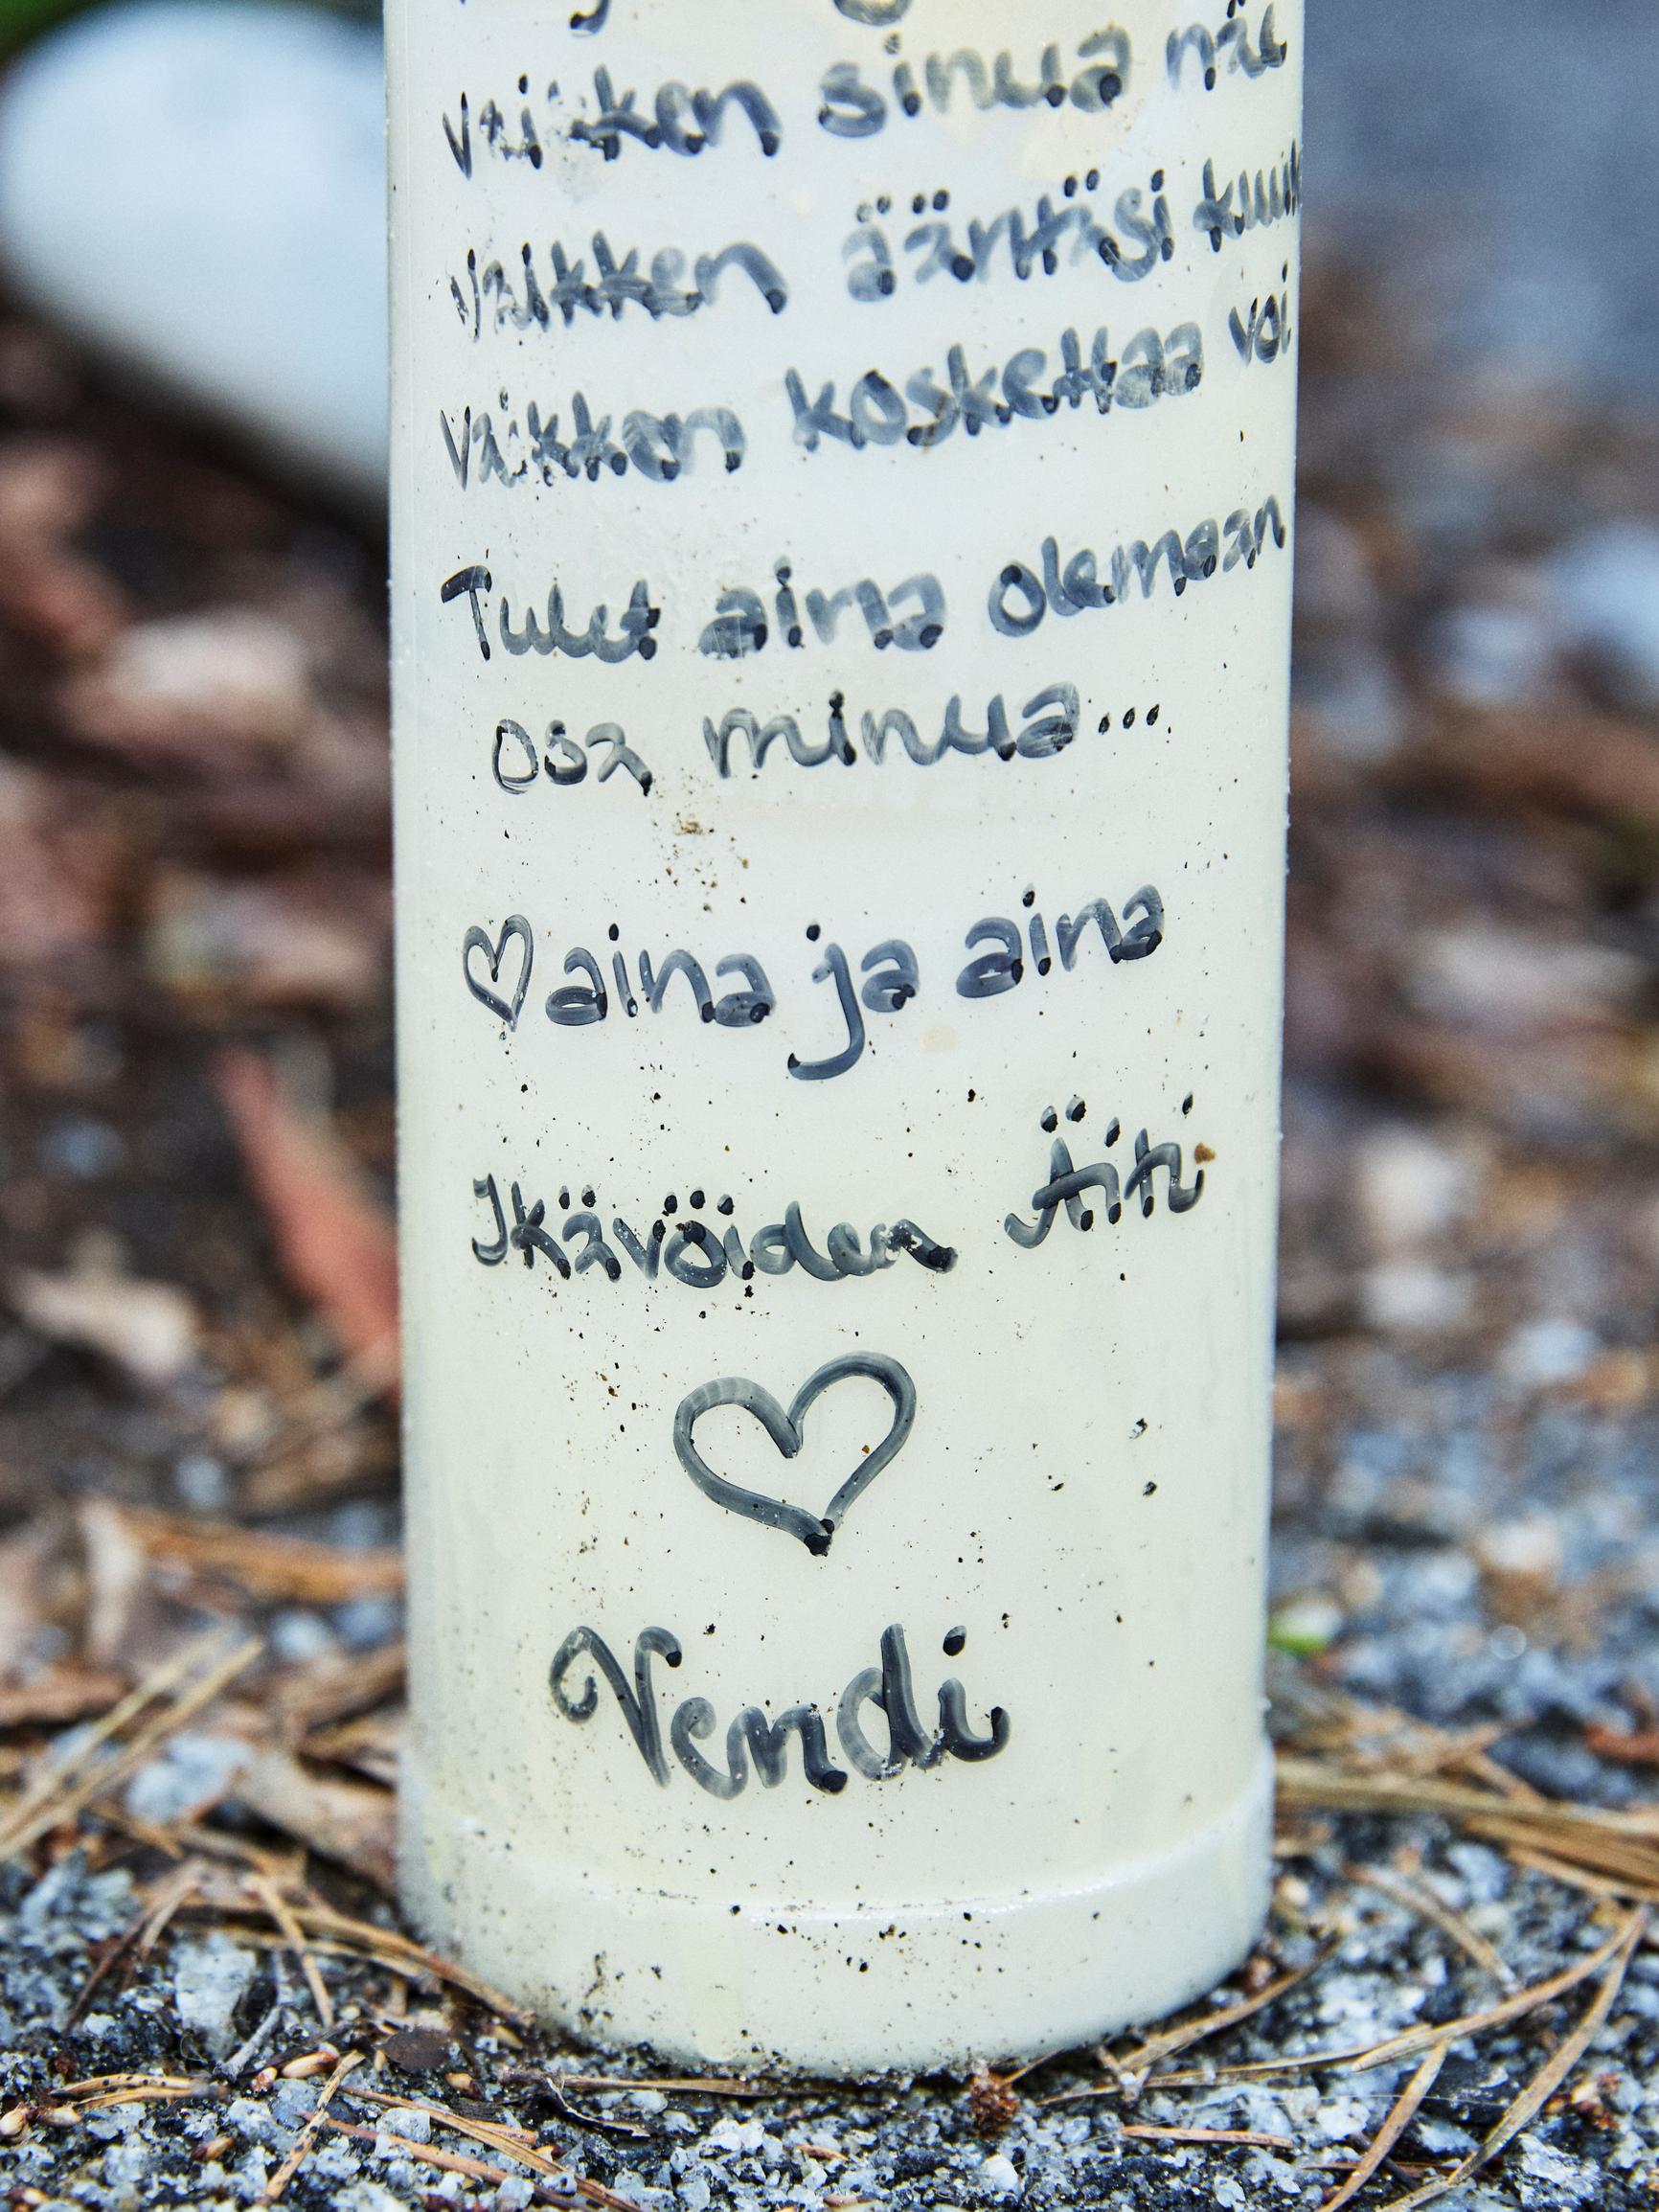 vaikken sinua näe
vaikken ääntäsi kuul
vaikken koskettaa voi
Tulet aina olemaan
osa minua...
♡ aina ja aina
Ikävöiden Äiti
♡
Vendi